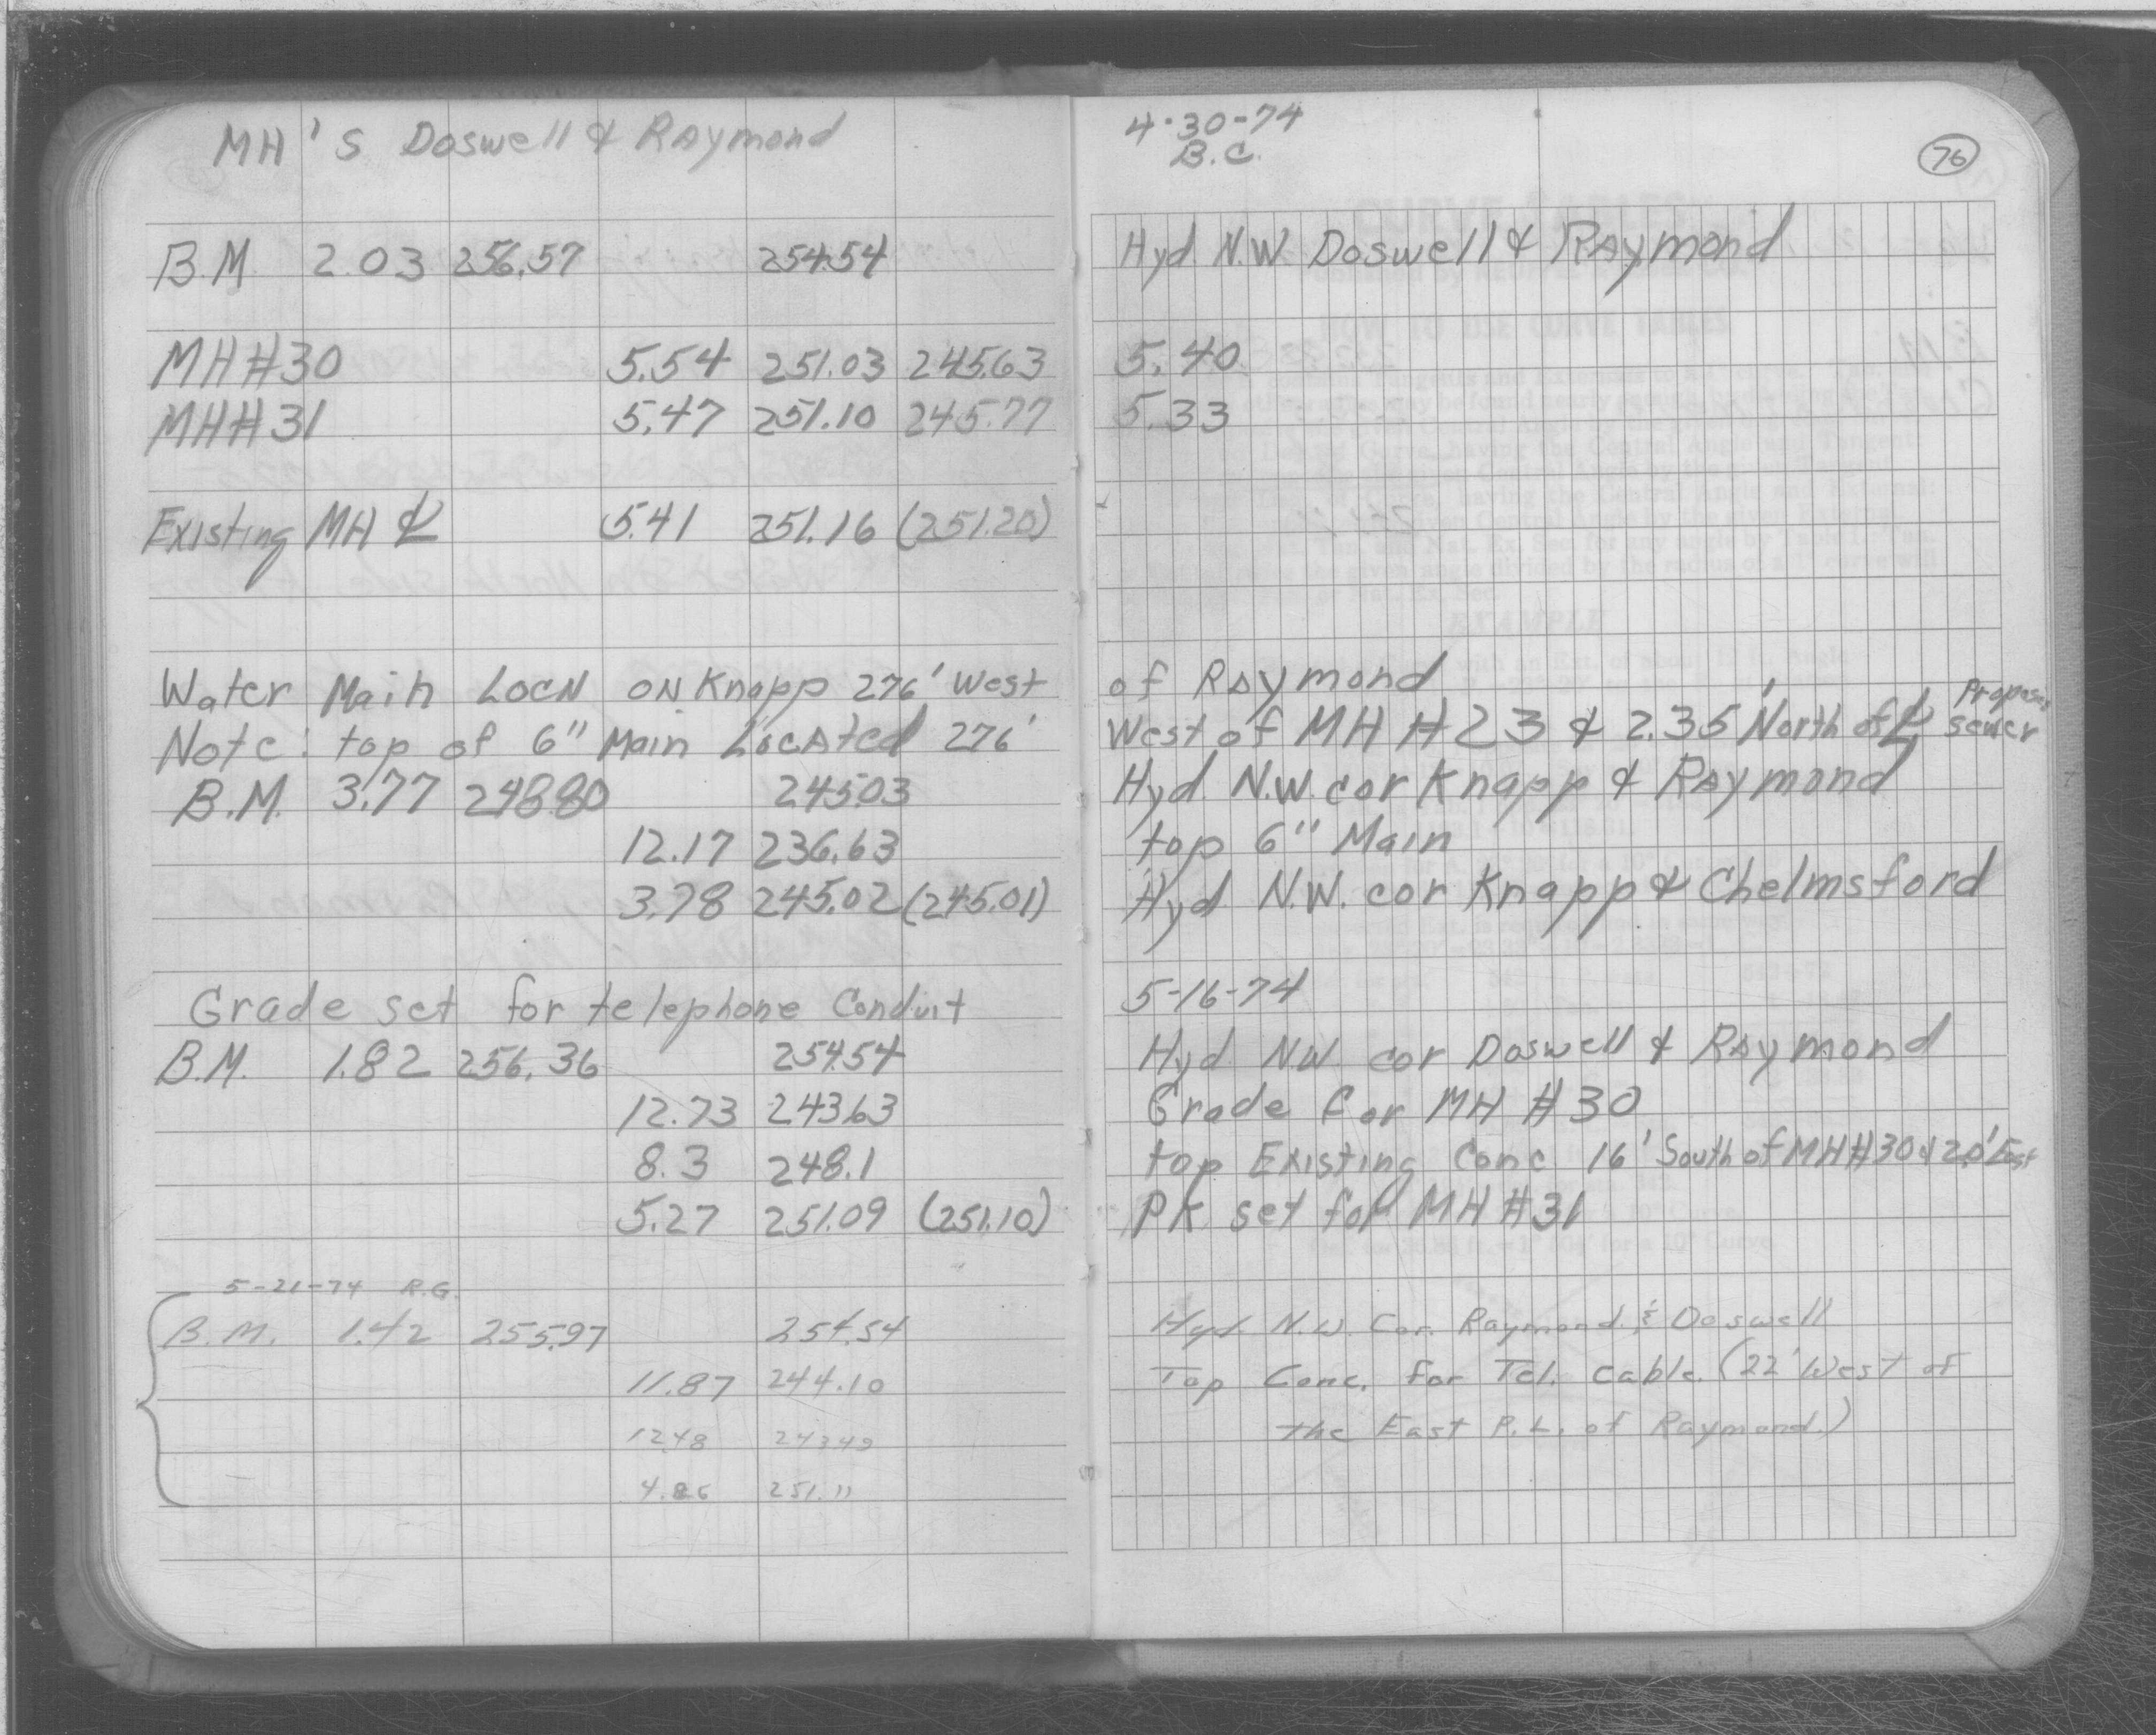 MH's Doswell & Raymond
B.M 2.03 256.57 254.54
MH#30 5.54 251.03 245.63
MH#31 5.47 251.10 245.77
Existing MH ℄ 5.41 251.16 (251.20)
Water Main Locn on Knapp 276' West
Note: top of 6" Main Located 276'
B.M. 3.77 248.80 245.03
12.17 236.63
3.78 245.02 (245.01)
Grade set for telephone Conduit
B.M. 1.82 256.36 254.54
12.73 243.63
8.3 248.1
5.27 251.09 (251.10)
5-21-74 R.G.
B.M. 1.42 255.97 254.54
11.87 244.10
12.48 243.49
4.86 251.11
4-30-74
B.C.
76
Hyd. N.W. Doswell & Raymond
5.40
5.33
of Raymond
West of MH #23 & 2.35' North of ℄ Proposed sewer
Hyd. N.W. cor Knapp & Raymond
top 6" Main
Hyd N.W. cor Knapp & Chelmsford
5-16-74
Hyd. NW cor Doswell & Raymond
Grade for MH #30
top Existing Conc 16' South of MH#30 & 20' East
PK set for MH #31
Hyd. N.W. Cor. Raymond & Doswell
Top Conc. for Tel. cable. (22' West of
the East P.L. of Raymond.)